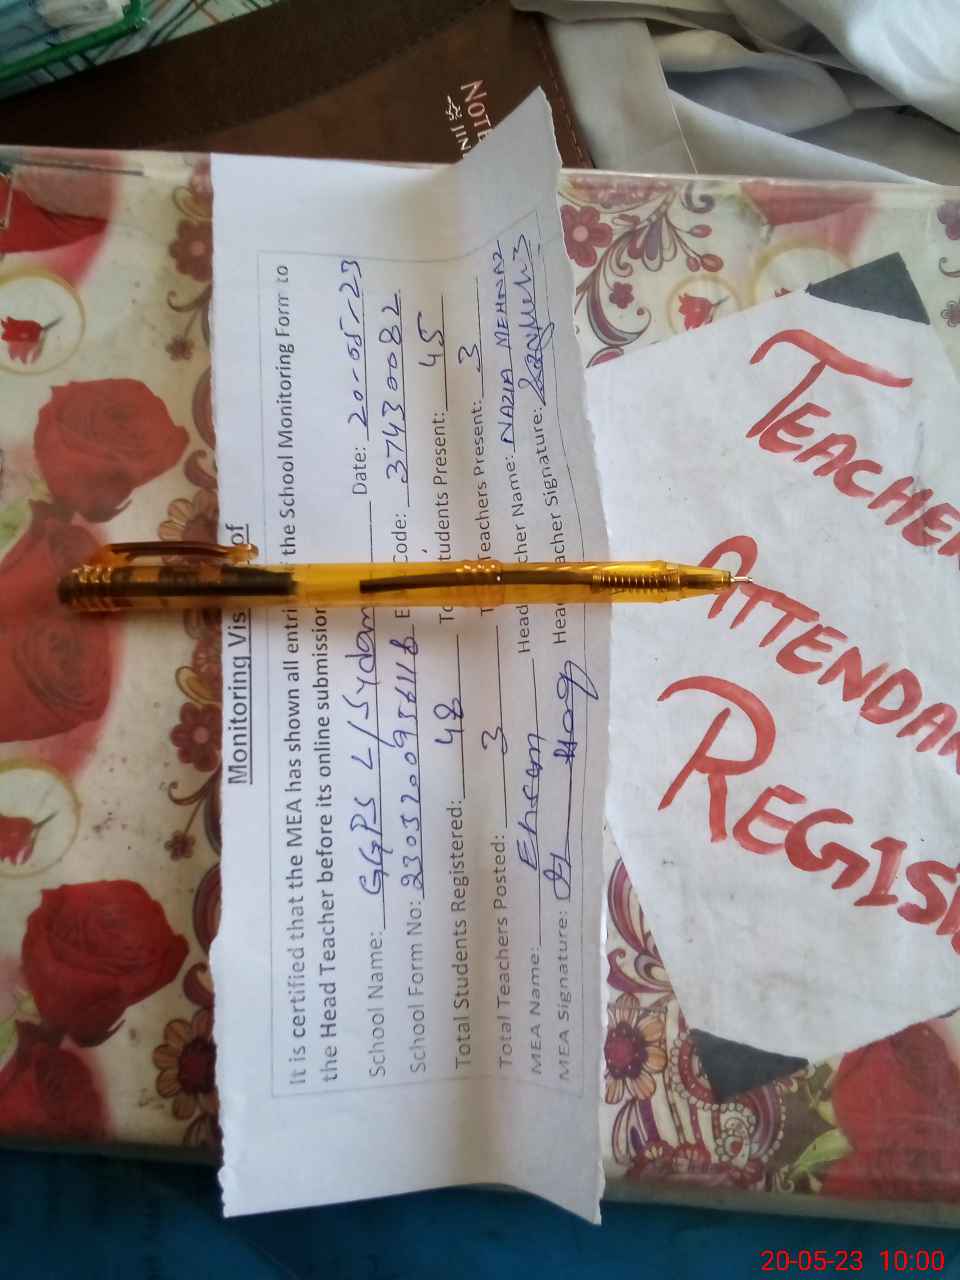 NOTE
Monitoring Vis of
It is certified that the MEA has shown all entri the School Monitoring Form to
the Head Teacher before its online submission
School Name: GGPS L/Sydan Date: 20-05-23
School Form No: Code: 37430082
Total Students Registered: 48 To tudents Present: 45
Total Teachers Posted: 3 T Teachers Present: 3
MEA Name: Head cher Name: NAZIA MEHNAZ
MEA Signature: Hea acher Signature:
TEACHER
ATTENDAN
REGIS
20-05-23 10:00